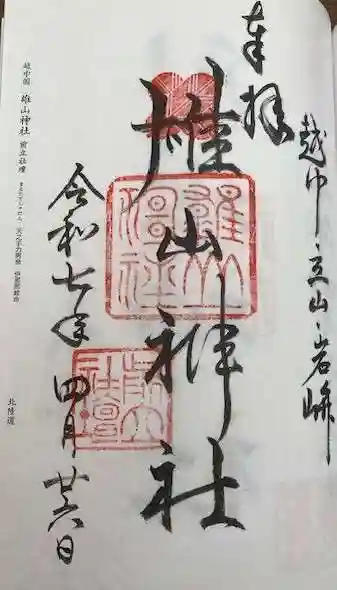 奉拝
越中・立山・岩峅
雄山神社
令和七年 四月 廿六日
越中國 雄山神社 前立社壇
北陸道